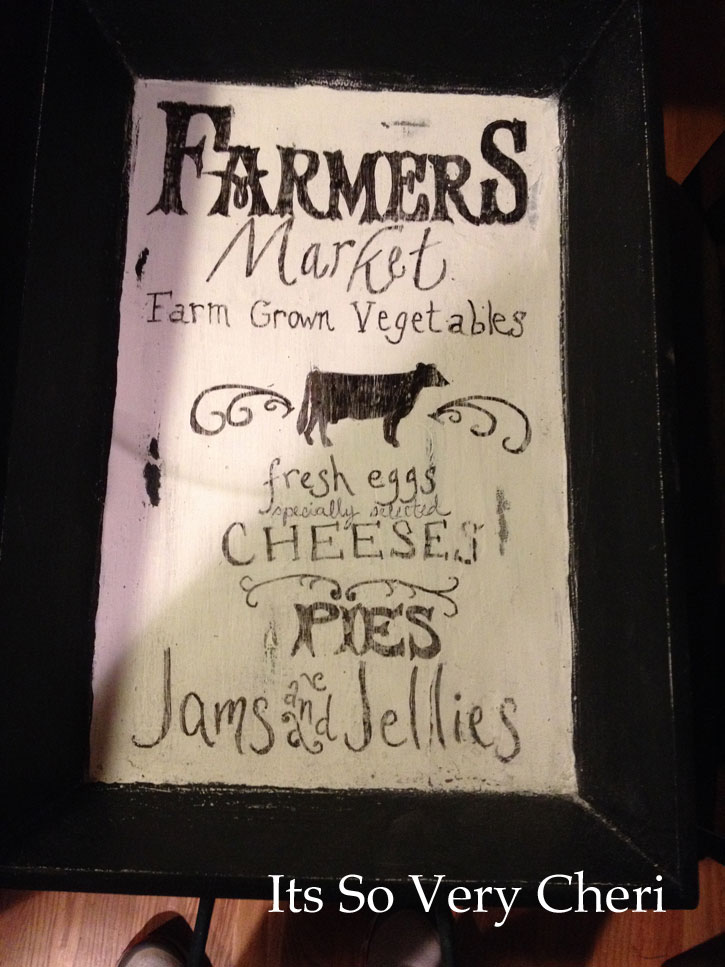 FARMERS
Market
Farm Grown Vegetables
fresh eggs
specially selected
CHEESES
PIES
Jams and Jellies
Its So Very Cheri